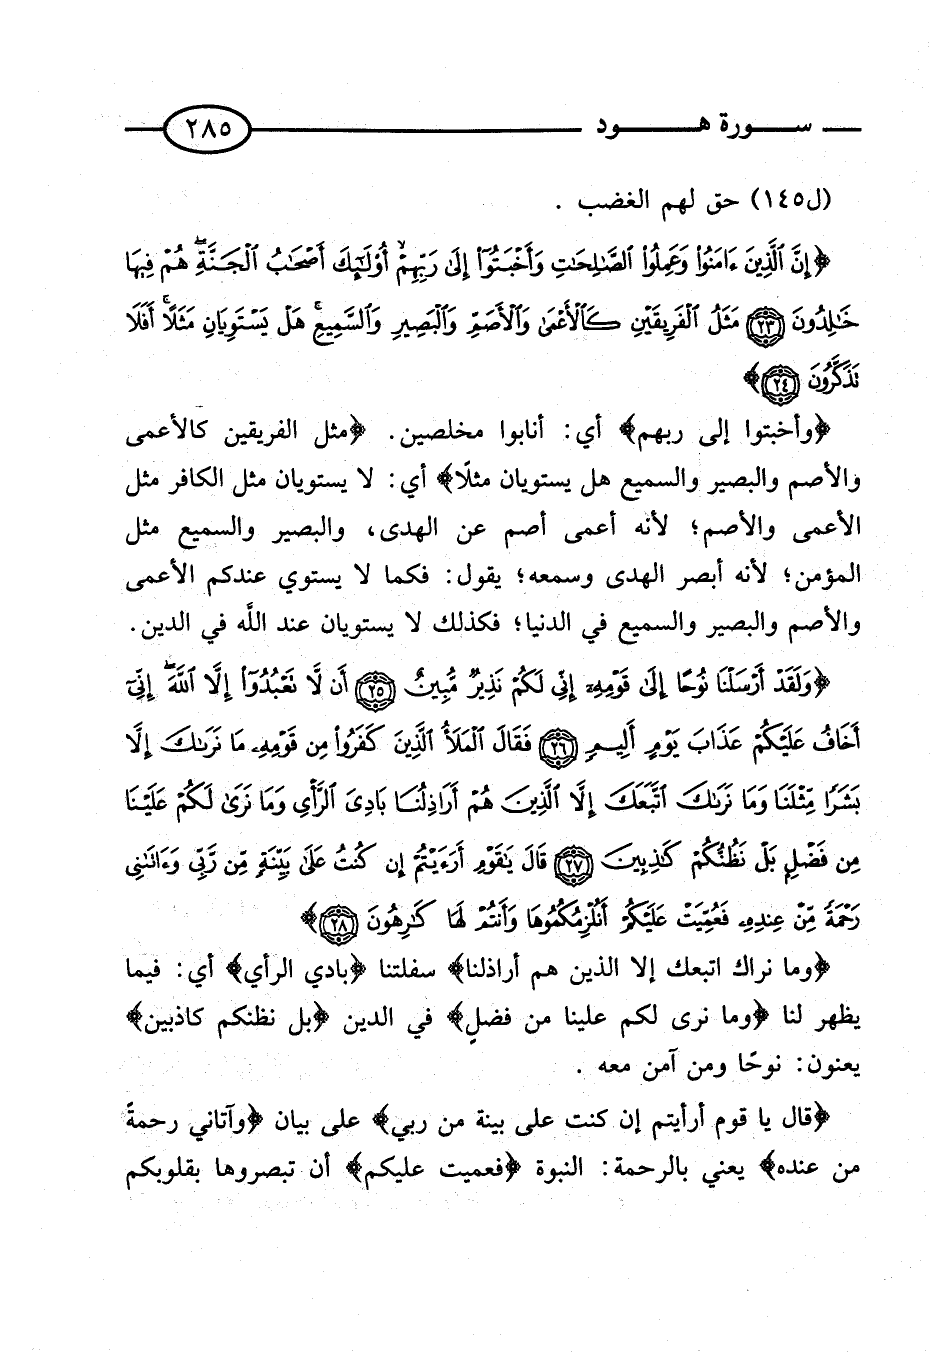 سورة هود ٢٨٥
(ل١٤٥) حق لهم الغضب .
﴿إِنَّ ٱلَّذِينَ ءَامَنُوا۟ وَعَمِلُوا۟ ٱلصَّـٰلِحَـٰتِ وَأَخْبَتُوٓا۟ إِلَىٰ رَبِّهِمْ أُو۟لَـٰٓئِكَ أَصْحَـٰبُ ٱلْجَنَّةِ ۖ هُمْ فِيهَا
خَـٰلِدُونَ ٢٣ مَثَلُ ٱلْفَرِيقَيْنِ كَٱلْأَعْمَىٰ وَٱلْأَصَمِّ وَٱلْبَصِيرِ وَٱلسَّمِيعِ ۚ هَلْ يَسْتَوِيَانِ مَثَلًا ۚ أَفَلَا
تَذَكَّرُونَ ٢٤﴾
﴿وأخبتوا إلى ربهم﴾ أي: أنابوا مخلصين. ﴿مثل الفريقين كالأعمى
والأصم والبصير والسميع هل يستويان مثلًا﴾ أي: لا يستويان مثل الكافر مثل
الأعمى والأصم؛ لأنه أعمى أصم عن الهدى، والبصير والسميع مثل
المؤمن؛ لأنه أبصر الهدى وسمعه؛ يقول: فكما لا يستوي عندكم الأعمى
والأصم والبصير والسميع في الدنيا؛ فكذلك لا يستويان عند اللَّه في الدين.
﴿وَلَقَدْ أَرْسَلْنَا نُوحًا إِلَىٰ قَوْمِهِۦٓ إِنِّى لَكُمْ نَذِيرٌ مُّبِينٌ ٢٥ أَن لَّا تَعْبُدُوٓا۟ إِلَّا ٱللَّهَ ۖ إِنِّىٓ
أَخَافُ عَلَيْكُمْ عَذَابَ يَوْمٍ أَلِيمٍ ٢٦ فَقَالَ ٱلْمَلَأُ ٱلَّذِينَ كَفَرُوا۟ مِن قَوْمِهِۦ مَا نَرَىٰكَ إِلَّا
بَشَرًا مِّثْلَنَا وَمَا نَرَىٰكَ ٱتَّبَعَكَ إِلَّا ٱلَّذِينَ هُمْ أَرَاذِلُنَا بَادِىَ ٱلرَّأْىِ وَمَا نَرَىٰ لَكُمْ عَلَيْنَا
مِن فَضْلٍۭ بَلْ نَظُنُّكُمْ كَـٰذِبِينَ ٢٧ قَالَ يَـٰقَوْمِ أَرَءَيْتُمْ إِن كُنتُ عَلَىٰ بَيِّنَةٍ مِّن رَّبِّى وَءَاتَىٰنِى
رَحْمَةً مِّنْ عِندِهِۦ فَعُمِّيَتْ عَلَيْكُمْ أَنُلْزِمُكُمُوهَا وَأَنتُمْ لَهَا كَـٰرِهُونَ ٢٨﴾
﴿وما نراك اتبعك إلا الذين هم أراذلنا﴾ سفلتنا ﴿بادي الرأي﴾ أي: فيما
يظهر لنا ﴿وما نرى لكم علينا من فضلٍ﴾ في الدين ﴿بل نظنكم كاذبين﴾
يعنون: نوحًا ومن آمن معه .
﴿قال يا قوم أرأيتم إن كنت على بينة من ربي﴾ على بيان ﴿وآتاني رحمةً
من عنده﴾ يعني بالرحمة: النبوة ﴿فعميت عليكم﴾ أن تبصروها بقلوبكم